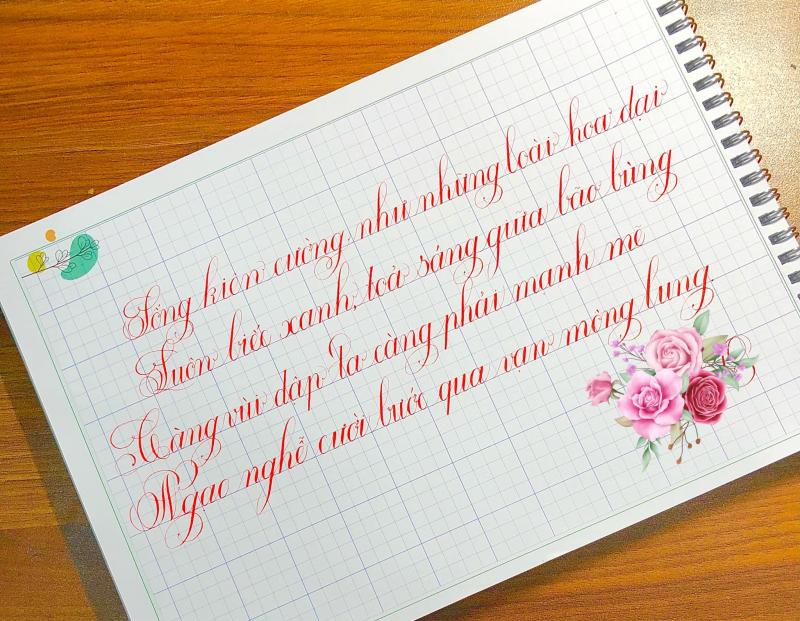 Sống kiên cường như những loài hoa dại
Luôn biếc xanh, toả sáng giữa bão bùng
Càng vùi dập Ta càng phải mạnh mẽ
Ngạo nghễ cười bước qua vạn mông lung